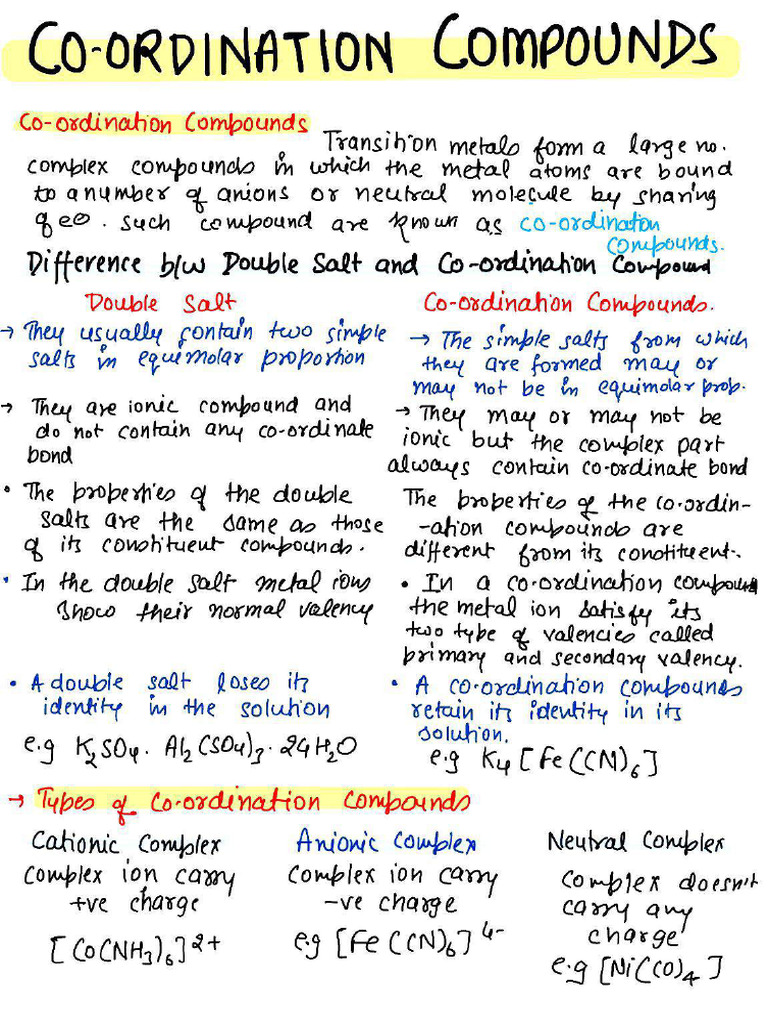 CO-ORDINATION COMPOUNDS
Co-ordination Compounds
Transition metals form a large no.
complex compounds in which the metal atoms are bound
to a number of anions or neutral molecule by sharing
of e⊖. Such compound are known as co-ordination
compounds.
Difference b/w Double Salt and Co-ordination Compound
Double Salt
→ They usually contain two simple
salts in equimolar proportion
→ They are ionic compound and
do not contain any co-ordinate
bond
• The properties of the double
salts are the same as those
of its constituent compounds.
• In the double salt metal ions
show their normal valency
• A double salt loses its
identity in the solution
e.g K₂SO₄. Al₂(SO₄)₃. 24H₂O
Co-ordination Compounds.
→ The simple salts from which
they are formed may or
may not be in equimolar prop.
→ They may or may not be
ionic but the complex part
always contain co-ordinate bond
The properties of the co-ordin-
-ation compounds are
different from its constituent.
• In a co-ordination compound
the metal ion satisfy its
two type of valencies called
primary and secondary valency.
• A co-ordination compounds
retain its identity in its
solution.
e.g K₄[Fe(CN)₆]
→ Types of Co-ordination Compounds
Cationic Complex
Complex ion carry
+ve charge
[Co(NH₃)₆]²⁺
Anionic Complex
Complex ion carry
-ve charge
e.g [Fe(CN)₆]⁴⁻
Neutral Complex
Complex doesn't
carry any
charge
e.g [Ni(CO)₄]